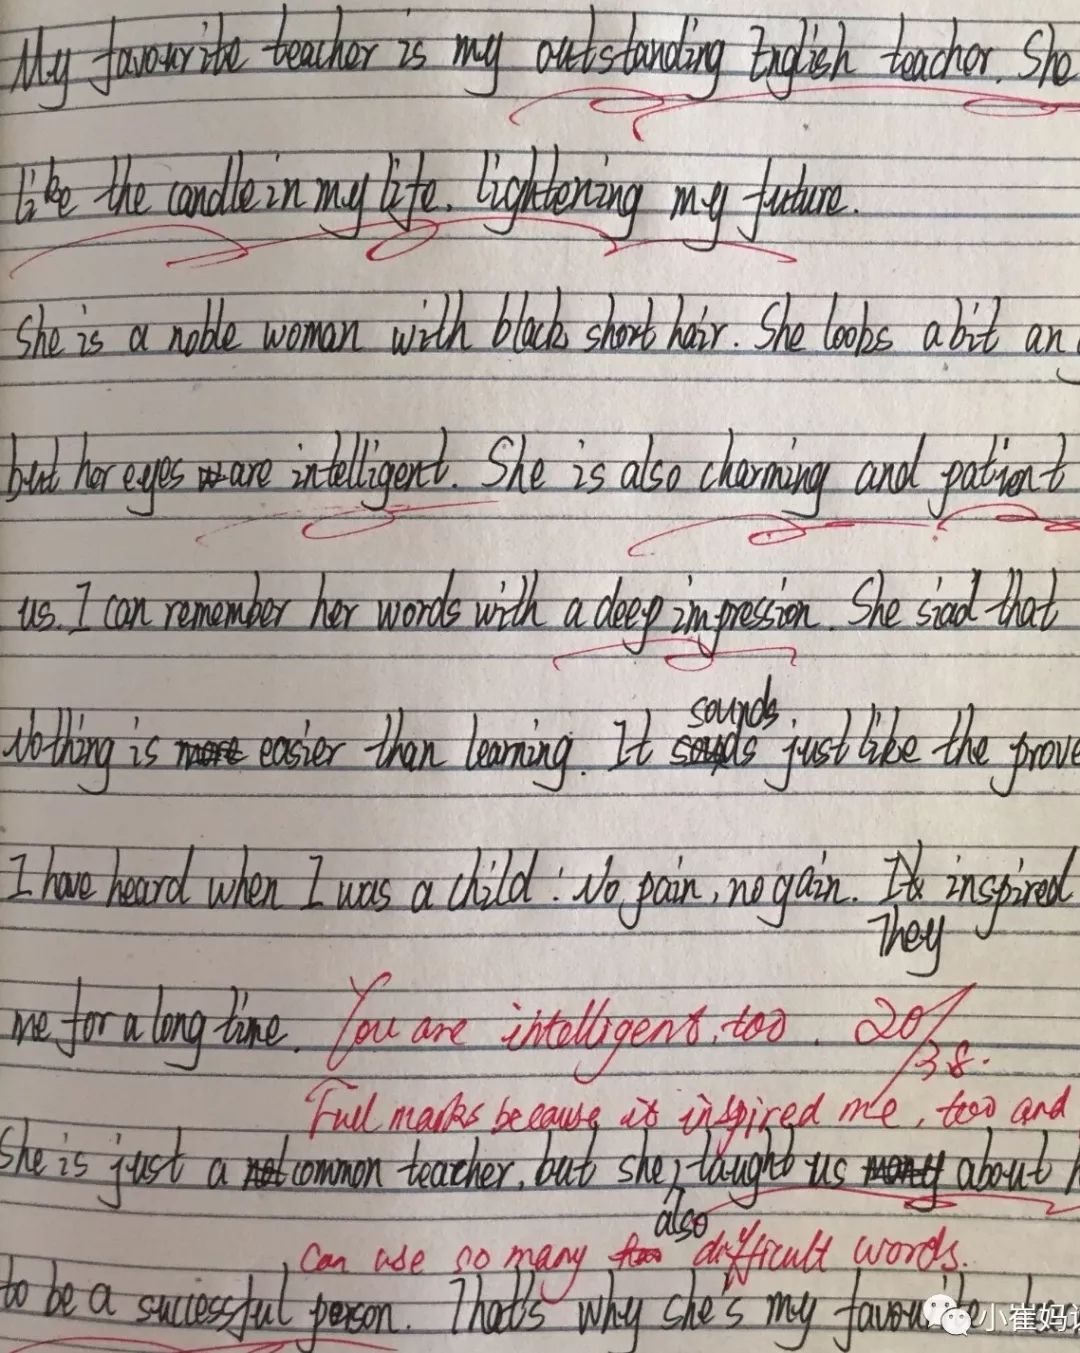 My favourite teacher is my outstanding English teacher. She
like the candle in my life. lightening my future.
She is a noble woman with black short hair. She looks a bit
but her eyes are intelligent. She is also charming and patient
us. I can remember her words with a deep impression. She siad that
Nothing is more easier than learning. It sounds just like the prove
I have heard when I was a child : No pain, no gain. They inspired
me for a long time. You are intelligent, too. 20/38.
Full marks because it inspired me, too and
She is just a common teacher, but she also taught us about
can use so many difficult words.
to be a successful person. That's why she's my favourite
小崔妈